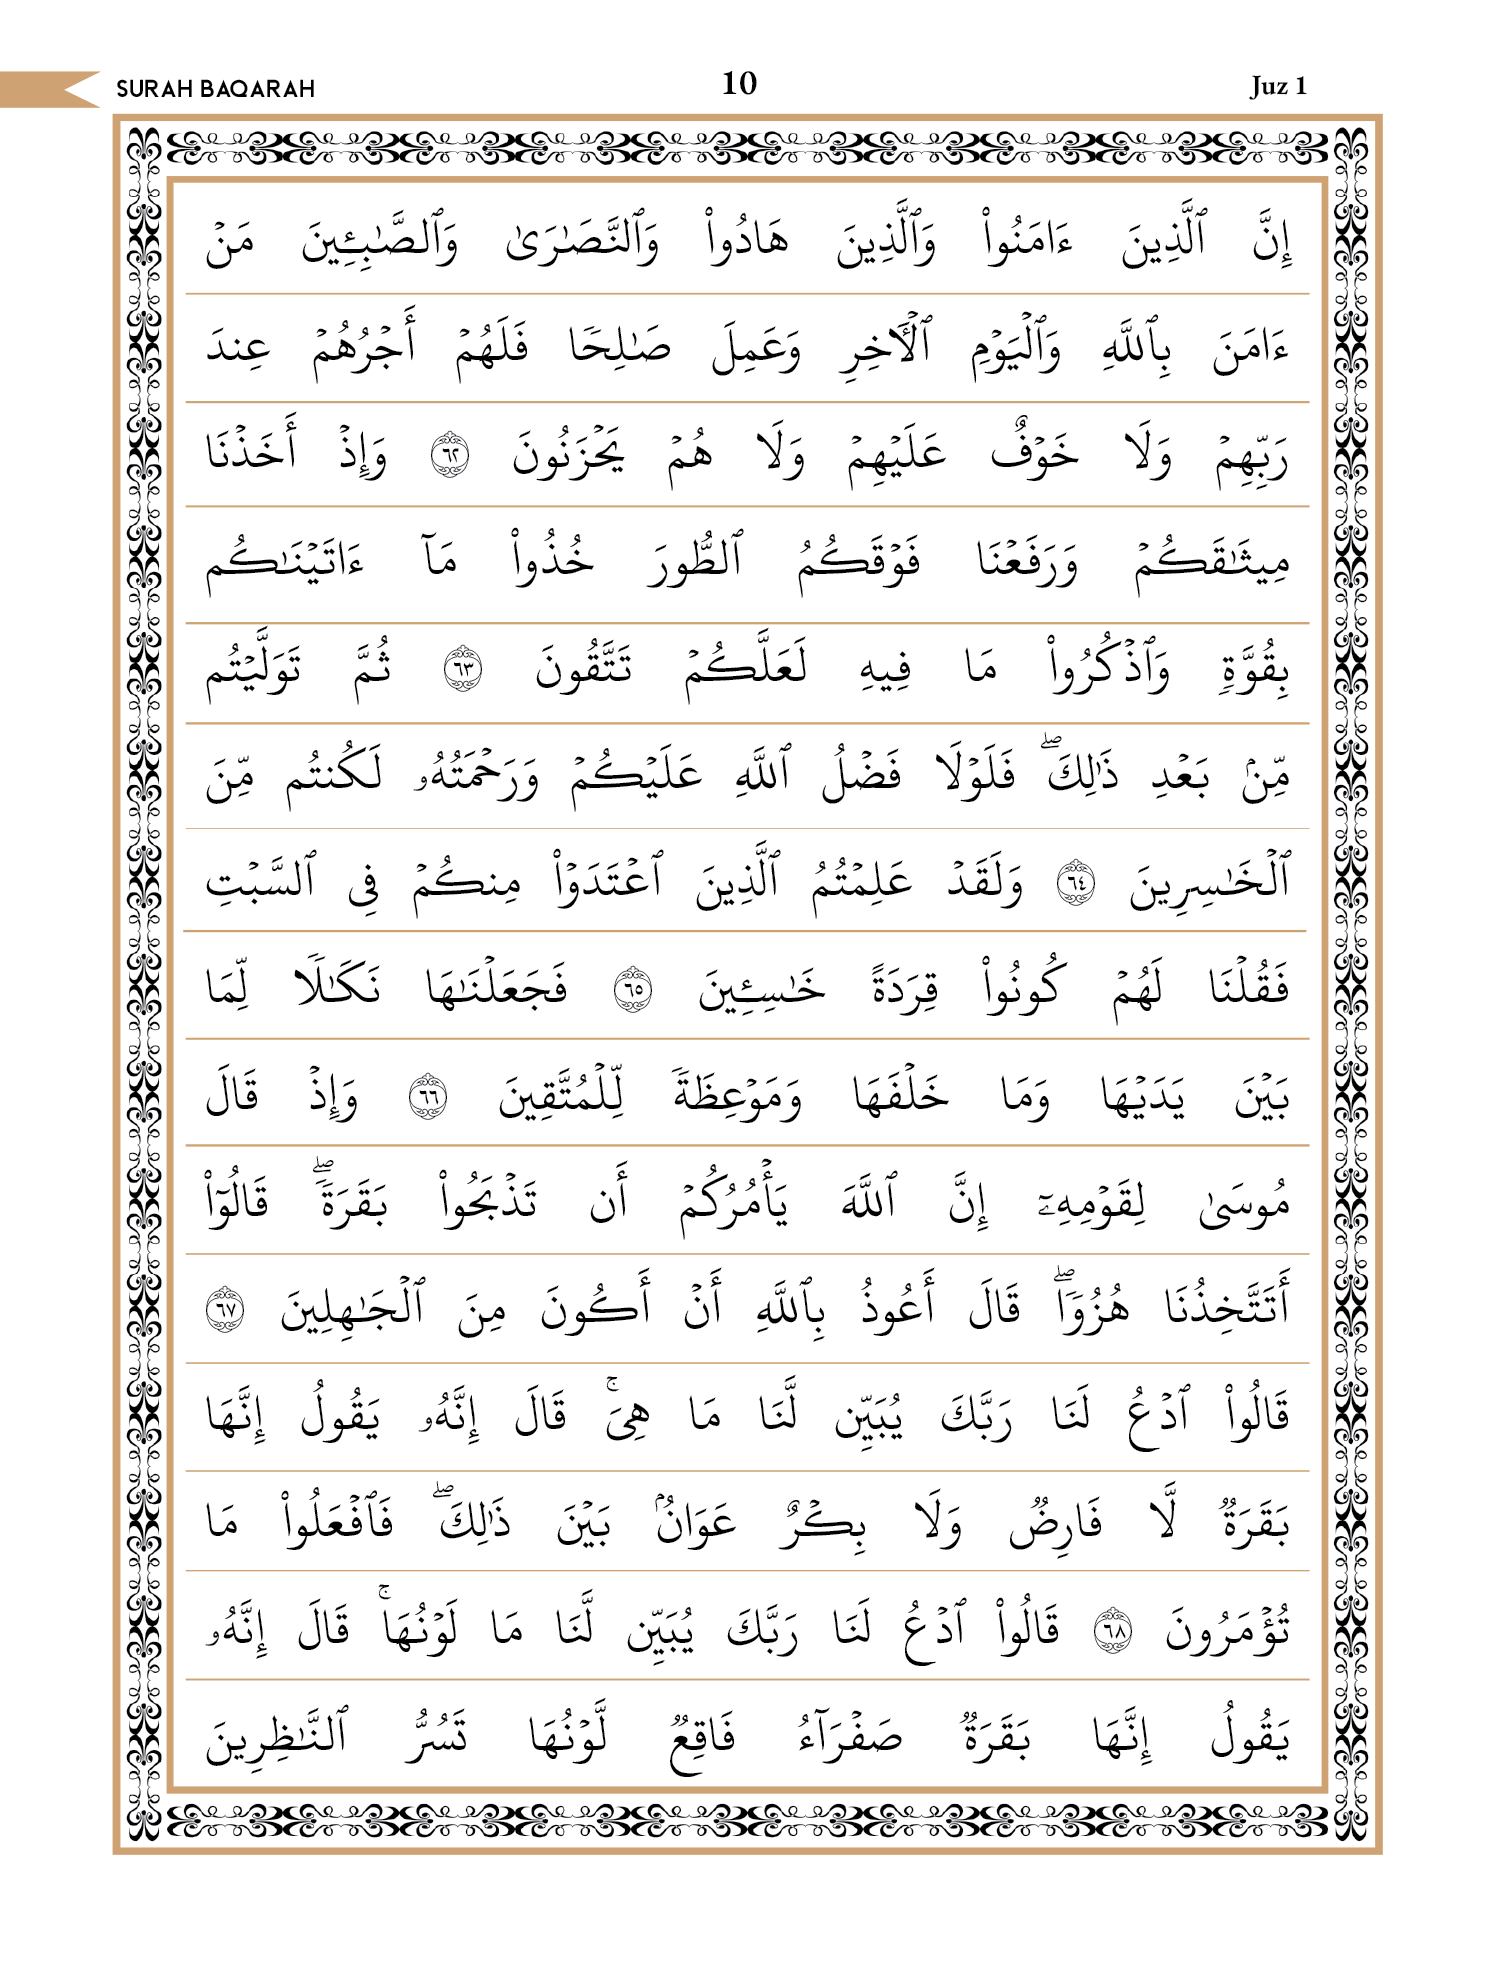 SURAH BAQARAH 10 Juz 1
إِنَّ ٱلَّذِينَ ءَامَنُوا۟ وَٱلَّذِينَ هَادُوا۟ وَٱلنَّصَـٰرَىٰ وَٱلصَّـٰبِـِٔينَ مَنْ
ءَامَنَ بِٱللَّهِ وَٱلْيَوْمِ ٱلْـَٔاخِرِ وَعَمِلَ صَـٰلِحًا فَلَهُمْ أَجْرُهُمْ عِندَ
رَبِّهِمْ وَلَا خَوْفٌ عَلَيْهِمْ وَلَا هُمْ يَحْزَنُونَ ٦٢ وَإِذْ أَخَذْنَا
مِيثَـٰقَكُمْ وَرَفَعْنَا فَوْقَكُمُ ٱلطُّورَ خُذُوا۟ مَآ ءَاتَيْنَـٰكُم
بِقُوَّةٍ وَٱذْكُرُوا۟ مَا فِيهِ لَعَلَّكُمْ تَتَّقُونَ ٦٣ ثُمَّ تَوَلَّيْتُم
مِّنۢ بَعْدِ ذَٰلِكَ ۖ فَلَوْلَا فَضْلُ ٱللَّهِ عَلَيْكُمْ وَرَحْمَتُهُۥ لَكُنتُم مِّنَ
ٱلْخَـٰسِرِينَ ٦٤ وَلَقَدْ عَلِمْتُمُ ٱلَّذِينَ ٱعْتَدَوْا۟ مِنكُمْ فِى ٱلسَّبْتِ
فَقُلْنَا لَهُمْ كُونُوا۟ قِرَدَةً خَـٰسِـِٔينَ ٦٥ فَجَعَلْنَـٰهَا نَكَـٰلًا لِّمَا
بَيْنَ يَدَيْهَا وَمَا خَلْفَهَا وَمَوْعِظَةً لِّلْمُتَّقِينَ ٦٦ وَإِذْ قَالَ
مُوسَىٰ لِقَوْمِهِۦٓ إِنَّ ٱللَّهَ يَأْمُرُكُمْ أَن تَذْبَحُوا۟ بَقَرَةً ۖ قَالُوٓا۟
أَتَتَّخِذُنَا هُزُوًا ۖ قَالَ أَعُوذُ بِٱللَّهِ أَنْ أَكُونَ مِنَ ٱلْجَـٰهِلِينَ ٦٧
قَالُوا۟ ٱدْعُ لَنَا رَبَّكَ يُبَيِّن لَّنَا مَا هِىَ ۚ قَالَ إِنَّهُۥ يَقُولُ إِنَّهَا
بَقَرَةٌ لَّا فَارِضٌ وَلَا بِكْرٌ عَوَانٌۢ بَيْنَ ذَٰلِكَ ۖ فَٱفْعَلُوا۟ مَا
تُؤْمَرُونَ ٦٨ قَالُوا۟ ٱدْعُ لَنَا رَبَّكَ يُبَيِّن لَّنَا مَا لَوْنُهَا ۚ قَالَ إِنَّهُۥ
يَقُولُ إِنَّهَا بَقَرَةٌ صَفْرَآءُ فَاقِعٌ لَّوْنُهَا تَسُرُّ ٱلنَّـٰظِرِينَ